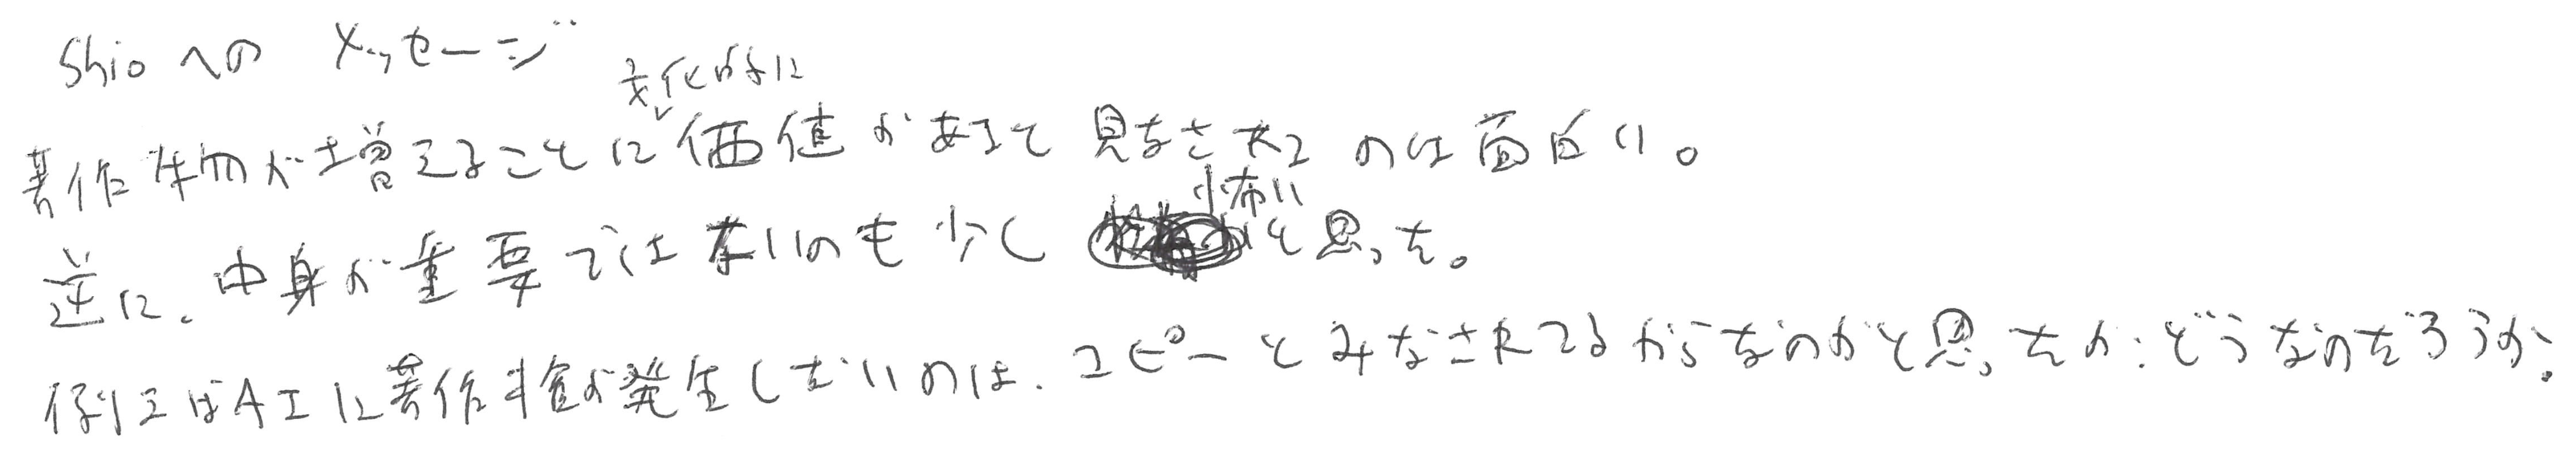 shioへの メッセージ
著作物が増えることに文化的に価値があると見なされるのは面白い。
逆に、中身が重要ではないのも少し怖いと思った。
例えばAIに著作権が発生しないのは、コピーとみなされてるからなのかと思ったが、どうなのだろうか。